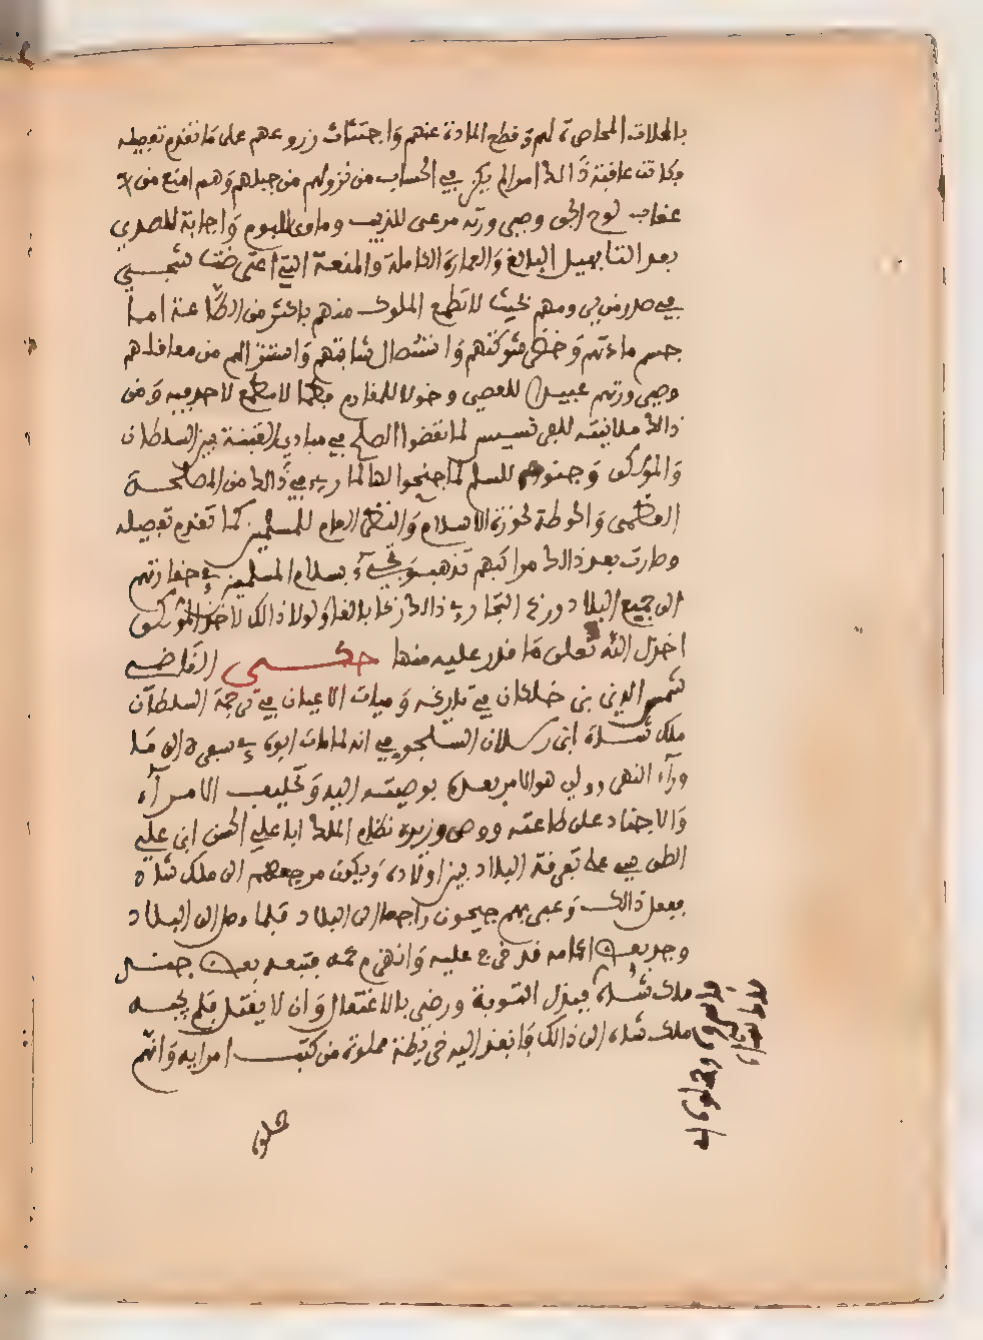 بالحلات المحاصرة لهم وقطع المادة عنهم واجتثاث زروعهم على ما تقدم تفصيله
وكانت عاقبة ذالك امرا لم يكن في الحساب من نزولهم من جبلهم وهم امنع من
عقاب لوح الجو وصيرورته مرعى للذيب وماوى للبوم واجابة للصدى
بعد التاهيل البالغ والعمارة الكاملة والمنعة التي اعتى ضت
في صدور من بى ومهم بحيث لا تطمع الملوك منهم باكثر من الطاعة اما
حسم مادتهم وخضد شوكتهم واستئصال شافتهم واستنزالهم من معاقلهم
وصيرورتهم عبيد للعصى وخولا للمغارم فكما لا مطمع لاحد فيه ومن
ذالك ملاينته للفرنسيس لما نقضوا الصلح في مبادي الفتنة بين السلطان
والمؤركي وجنوحه للسلم لما جنحوا لها لما رءا في ذالك من المصلحة
العظمى والحوطة لحوزة الاسلام والنظر العام للمسلمين كما تقدم تفصيله
وصارت بعد ذالك مراكبهم تذهب وتجيء بسلام المسلمين في خفارتهم
الى جميع البلاد وربح التجار في ذالك ربحا بالغا ولولا ذالك لاخذ المؤركي
اخزل الله تعلى ما قدر عليه منها حكى القاضي
شمس الدين بن خلكان في تاريخه وفيات الاعيان في ترجمة السلطان
ملك شاه ابن رسلان السلجوفي انه لما مات ابوه في سفره الى ما
ورآء النهر وولي هو الامر بعده بوصيته اليه وتحليف الامرآء
والاجناد على طاعته ووصى وزيره نظام الملك ابا علي الحسن ابن علي
الطوسي على تفرقة البلاد بين اولاده ويكون مرجعهم الى ملك شاه
ففعل ذالك وعبر بهم جيحون راجعا الى البلاد فلما وصل الى البلاد
وجد بعض اعمامه قد خرج عليه وانهزم عمه فتبعه بعض جند
ملك شاه فبذل التوبة ورضي بالاعتقال وان لا يقتل فلم يجبه
ملك شاه الى ذالك فانفذ اليه خريطة مملوة من كتب امرايه وانهم
حملوه